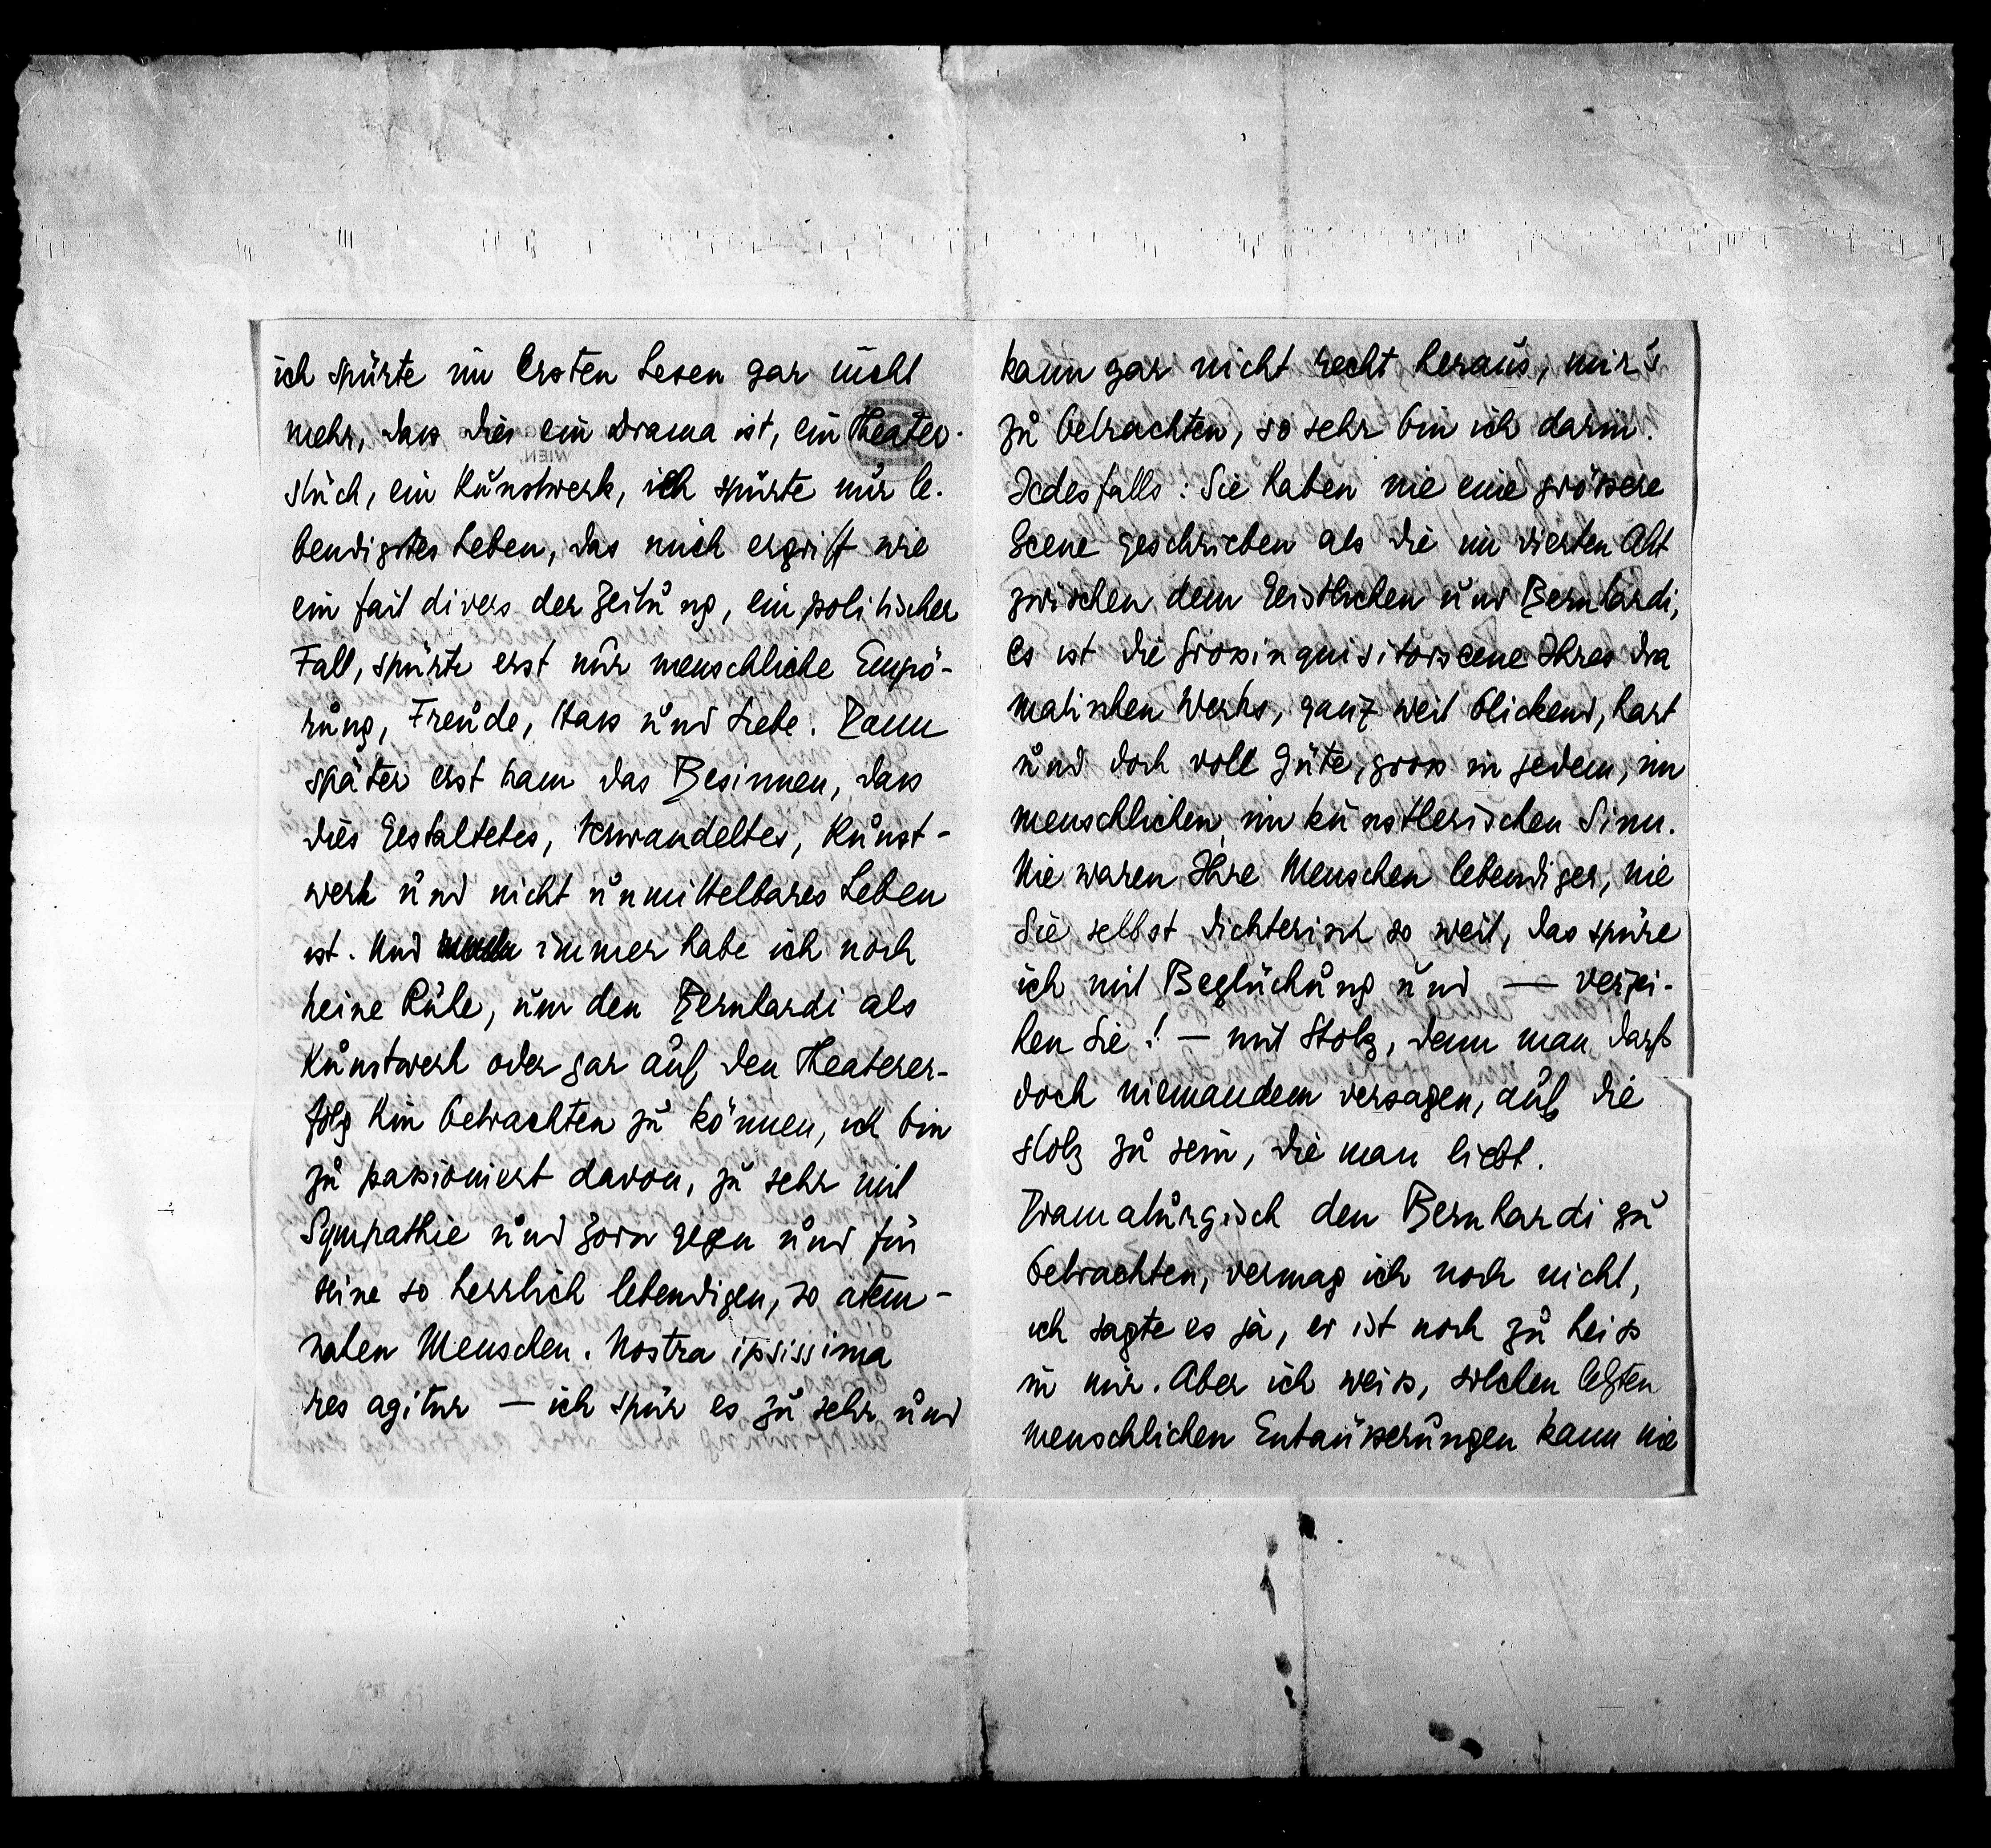 ich spürte im ersten Lesen gar nicht
mehr, dass dies ein Drama ist, ein Theater-
stück, ein Kunstwerk, ich spürte nur le-
bendigstes Leben, das mich ergriff wie
ein fait divers der Zeitung, ein politischer
Fall, spürte erst nur menschliche Empö-
rung, Freude, Hass und Liebe. Dann
später erst kam das Besinnen, dass
dies Gestaltetes, Verwandeltes, Kunst-
werk und nicht unmittelbares Leben
ist. Und immer habe ich noch
keine Ruhe, um den Bernhardi als
Kunstwerk oder gar auf den Theaterer-
folg hin betrachten zu können, ich bin
zu passioniert davon, zu sehr mit
Sympathie und Zorn gegen und für
seine so herrlich lebendigen, so atem-
nahen Menschen. Nostra ipsissima
res agitur — ich spür es zu sehr und
kann gar nicht recht heraus, mir's
zu betrachten, so sehr bin ich darin.
Jedesfalls: Sie haben nie eine grössere
Scene geschrieben als die im vierten Akt
zwischen dem Geistlichen und Bernhardi,
es ist die Grossinquisitorscene Ihres dra
matischen Werks, ganz weit blickend, hart
und doch voll Güte, gross in jedem, im
menschlichen, im künstlerischen Sinn.
Nie waren Ihre Menschen lebendiger, nie
Sie selbst dichterisch so weit, das spüre
ich mit Beglückung und — verzei-
hen Sie! — mit Stolz, denn man darf
doch niemandem versagen, auf die
stolz zu sein, die man liebt.
Dramaturgisch den Bernhardi zu
betrachten, vermag ich noch nicht,
ich sagte es ja, er ist noch zu heiss
in mir. Aber ich weiss, solchen letzten
menschlichen Entäusserungen kann nie